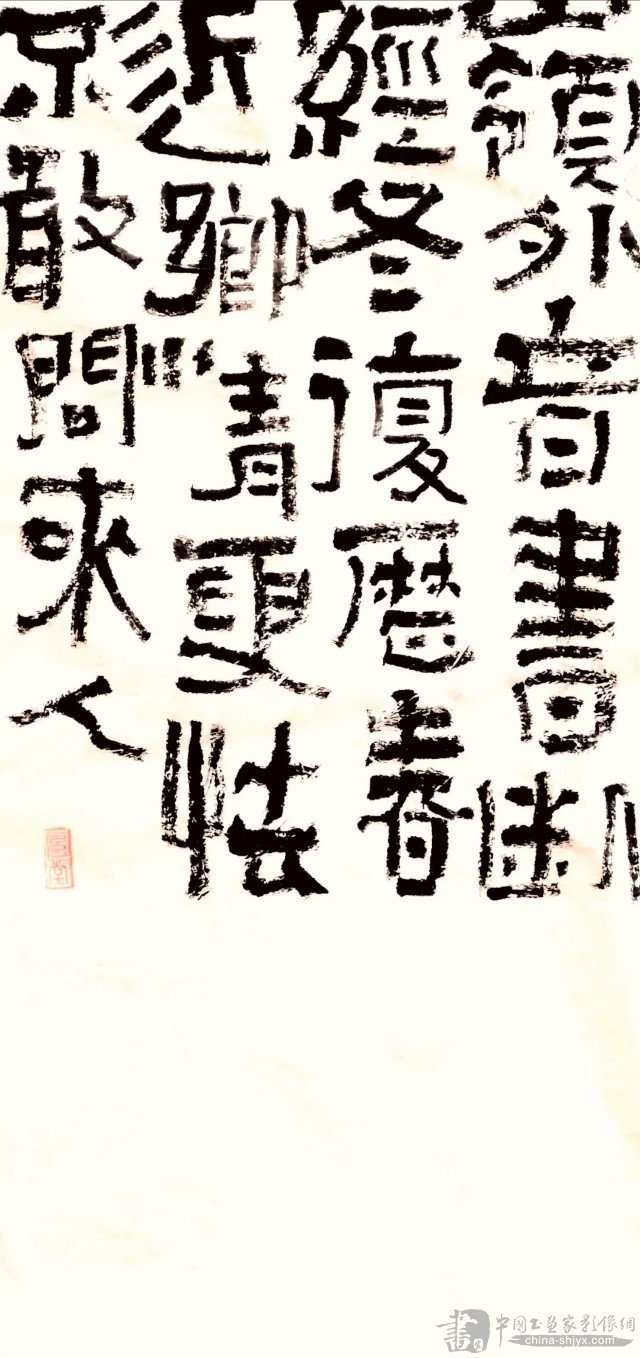 嶺外音書断
經冬復歷春
近鄉情更怯
不敢問来人
書 中国书画家影像網
china-shjyx.com